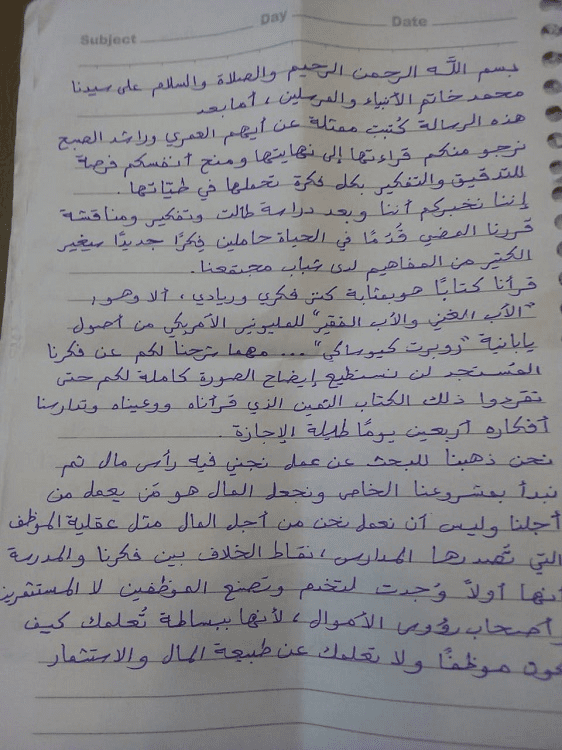 Subject Day Date
بسم الله الرحمن الرحيم والصلاة والسلام على سيدنا
محمد خاتم الأنبياء والمرسلين ، أما بعد
هذه الرسالة كُتبت ممثلة عن أيهم العمري وراشد الصبع
نرجو منكم قراءتها إلى نهايتها ومنح أنفسكم فرصة
للتدقيق والتفكير بكل فكرة تحملها في طيّاتها .
إننا نخبركم أننا وبعد دراسة طالت وتفكير ومناقشة
قررنا المضي قُدمًا في الحياة حاملين فِكرًا جديدًا سيغير
الكثير من المفاهيم لدى شباب مجتمعنا .
قرأنا كتابًا هو بمثابة كنز فكري وريادي ، ألا وهو :
"الأب الغني والأب الفقير" للمليونير الأمريكي من أصول
يابانية "روبرت كيوساكي" ... مهما شرحنا لكم عن فكرنا
المُستجد لن نستطيع إيضاح الصورة كاملة لكم حتى
تقرأوا ذلك الكتاب الثمين الذي قرأناه ووعيناه وتدارسنا
أفكاره أربعين يومًا طيلة الإجازة .
نحن ذهبنا للبحث عن عمل نجني فيه رأس مال ثم
نبدأ بمشروعنا الخاص ونجعل المال هو مَن يعمل من
أجلنا وليس أن نعمل نحن من أجل المال مثل عقلية الموظف
التي تُصدرها المدارس ، نقاط الخلاف بين فكرنا والمدرسة
أنها أولاً وُجدت لتخدم وتصنع الموظفين لا المستثمرين
وأصحاب رؤوس الأموال ، لأنها ببساطة تُعلمك كيف
تكون موظفًا ولا تعلمك عن طبيعة المال والاستثمار